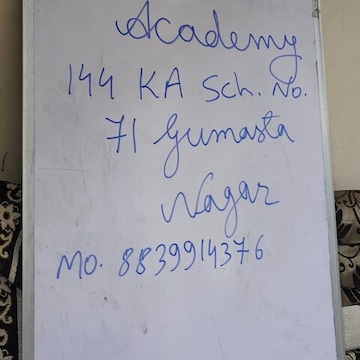 Academy
144 KA Sch. No.
71 Gumasta
Nagar
Mo. 8839914376